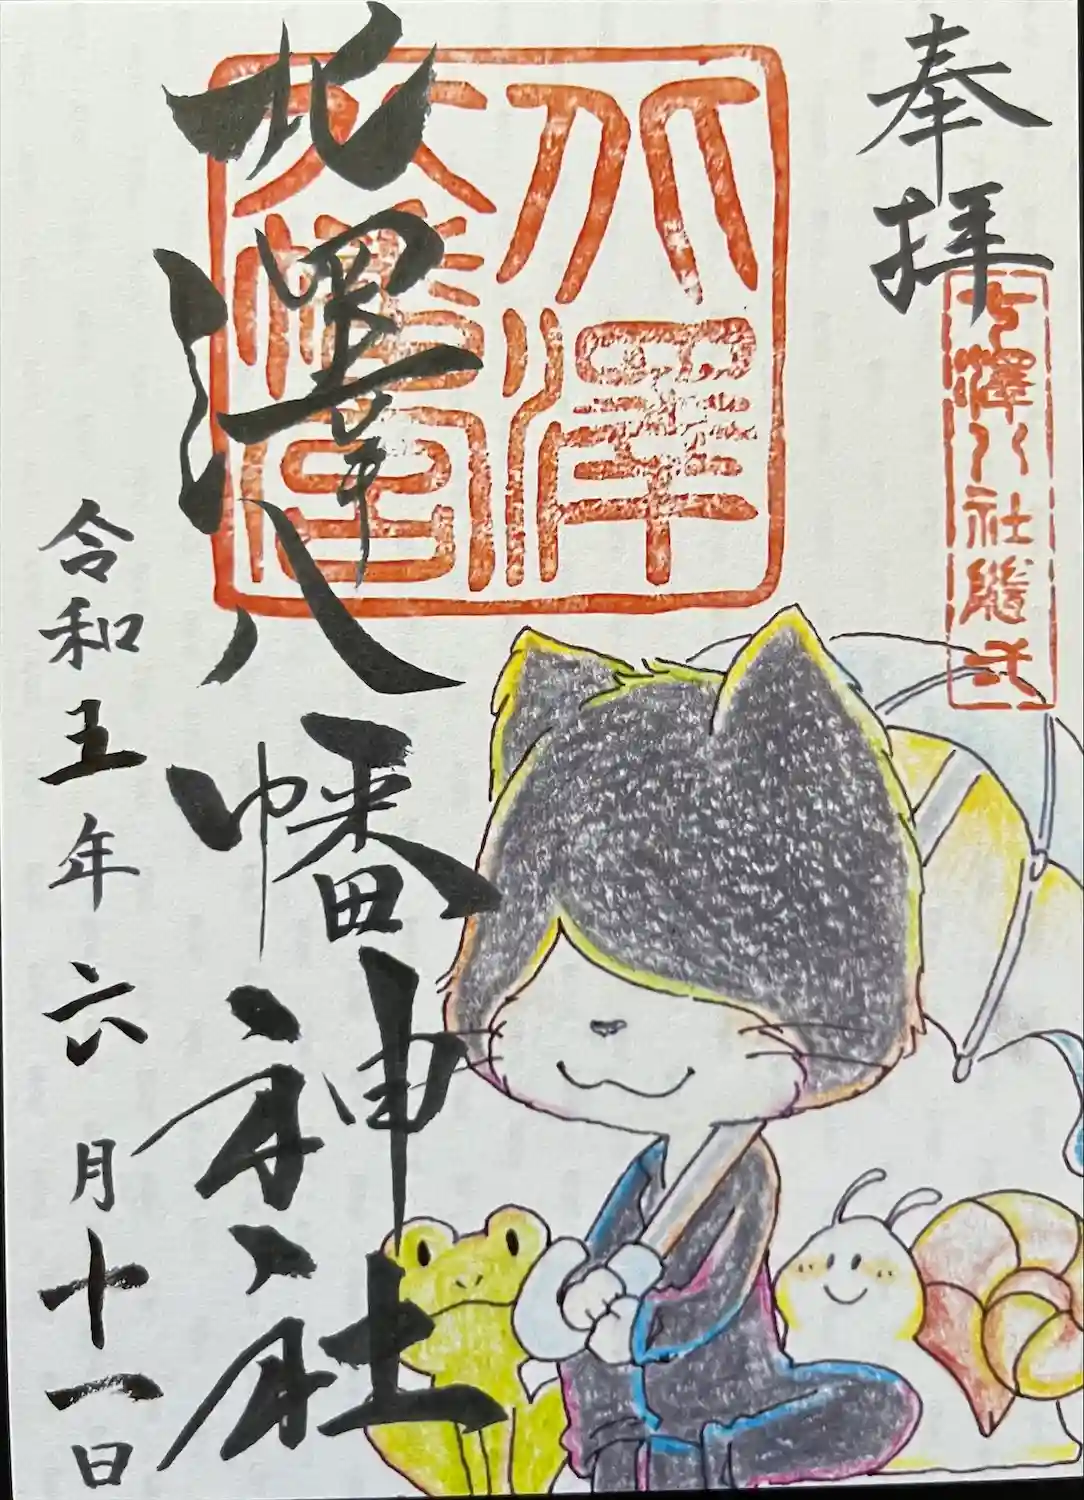 奉拝
七澤八社随弌
北澤八幡神社
北澤
八幡宮
令和五年六月十一日